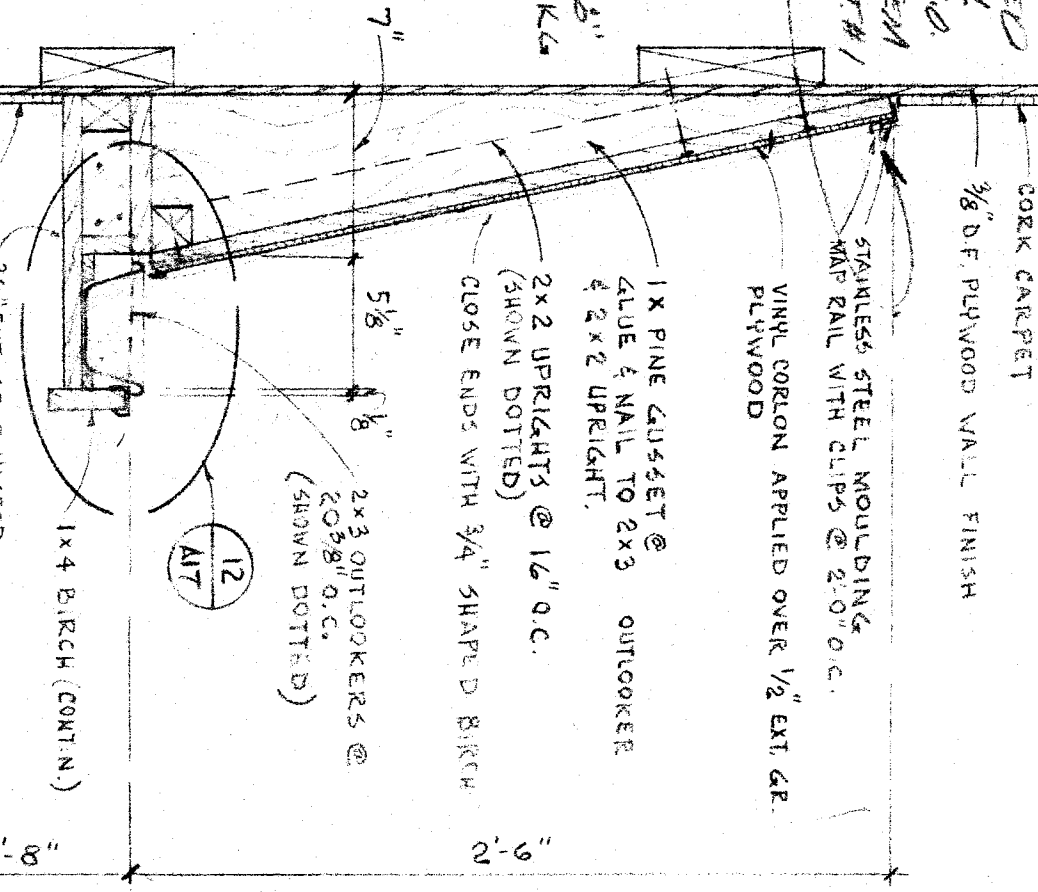 CORK CARPET
3/8" D.F. PLYWOOD WALL FINISH
STAINLESS STEEL MOULDING
MAP RAIL WITH CLIPS @ 2'-0" O.C.
VINYL CORLON APPLIED OVER 1/2" EXT. GR.
PLYWOOD
1X PINE GUSSET @
GLUE & NAIL TO 2X3 OUTLOOKER
& 2X2 UPRIGHT.
2X2 UPRIGHTS @ 16" O.C.
(SHOWN DOTTED)
CLOSE ENDS WITH 3/4" SHAPED BIRCH
7"
5 1/8"
1/8"
2x3 OUTLOOKERS @
20 3/8" O.C.
(SHOWN DOTTED)
12
A17
1x4 BIRCH (CONTIN.)
2'-6"
'-8"